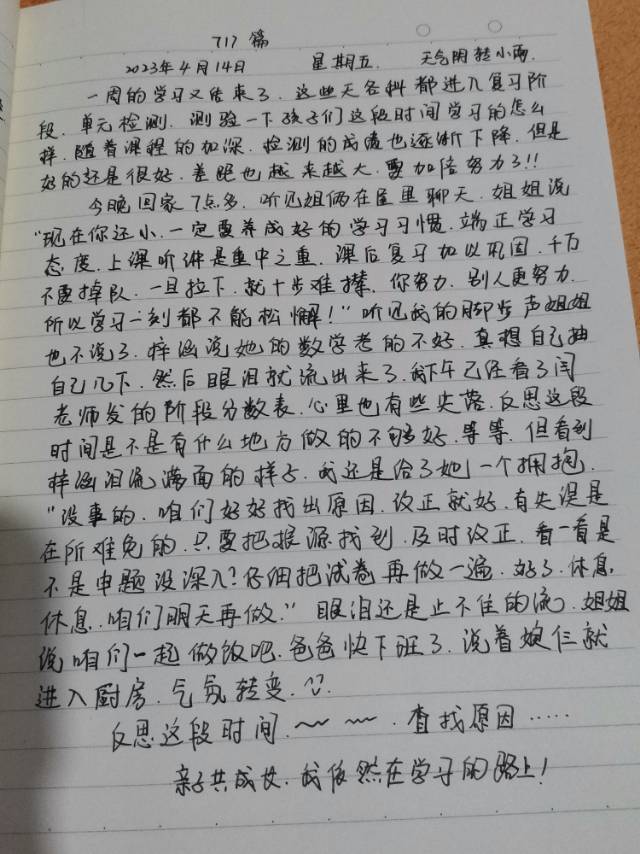 717篇
2023年4月14日 星期五. 天气阴转小雨.
一周的学习又结束了. 这些天各科都进入复习阶
段. 单元检测. 测验一下孩子们这段时间学习的怎么
样. 随着课程的加深. 检测的成绩也逐渐下降. 但是
好的还是很好. 差距也越来越大. 要加倍努力了!!
今晚回家7点多. 听见姐俩在屋里聊天. 姐姐说
“现在你还小. 一定要养成好的学习习惯. 端正学习
态度. 上课听讲是重中之重. 课后复习加以巩固. 千万
不要掉队. 一旦拉下. 就十步难撵. 你努力. 别人更努力.
所以学习一刻都不能松懈!” 听见我的脚步声姐姐
也不说了. 梓涵说她的数学考的不好. 真想自己抽
自己几下. 然后眼泪就流出来了. 我下午已经看了闫
老师发的阶段分数表. 心里也有些失落. 反思这段
时间是不是有什么地方做的不够好. 等等. 但看到
梓涵泪流满面的样子. 我还是给了她一个拥抱.
“没事的. 咱们好好找出原因. 改正就好. 有失误是
在所难免的. 只要把根源找到. 及时改正. 看一看是
不是审题没深入? 仔细把试卷再做一遍. 好了. 休息.
休息. 咱们明天再做.” 眼泪还是止不住的流. 姐姐
说咱们一起做饭吧. 爸爸快下班了. 说着娘仨就
进入厨房. 气氛转变.
反思这段时间. ~~ ~~ . 查找原因 .....
亲子共成长. 我依然在学习的路上!